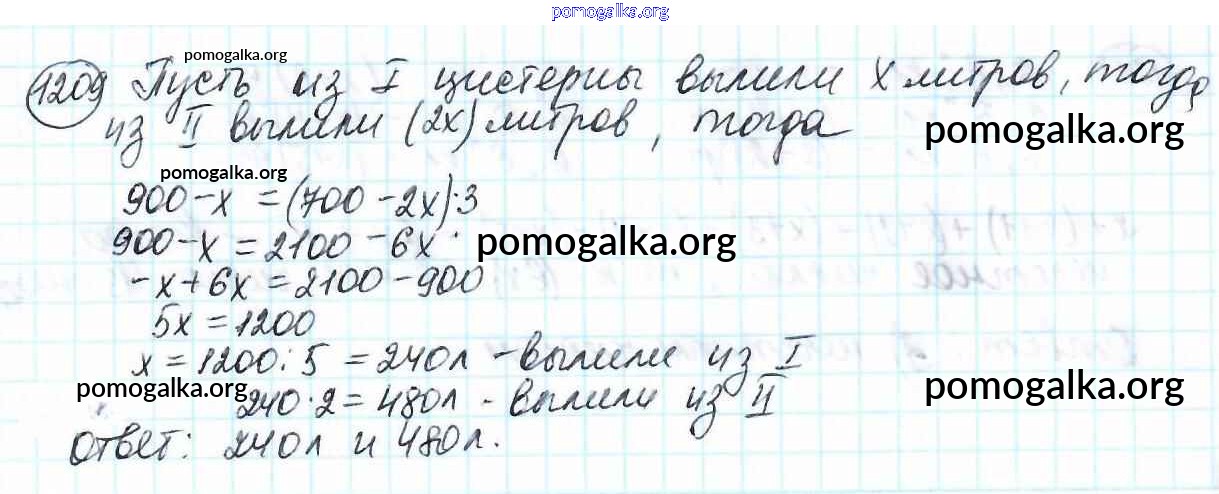 pomogalka.org
pomogalka.org
1209 Пусть из I цистерны вылили x литров, тогда
из II вылили (2x) литров, тогда
pomogalka.org
pomogalka.org
900 - x = (700 - 2x)·3
900 - x = 2100 - 6x
pomogalka.org
-x + 6x = 2100 - 900
5x = 1200
x = 1200 : 5 = 240л - вылили из I
pomogalka.org
pomogalka.org
240 · 2 = 480л - вылили из II
Ответ: 240л и 480л.